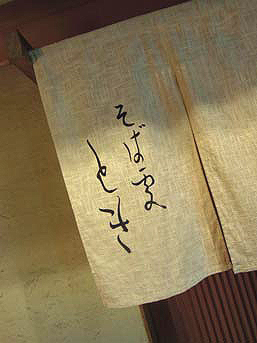 そば處
とき